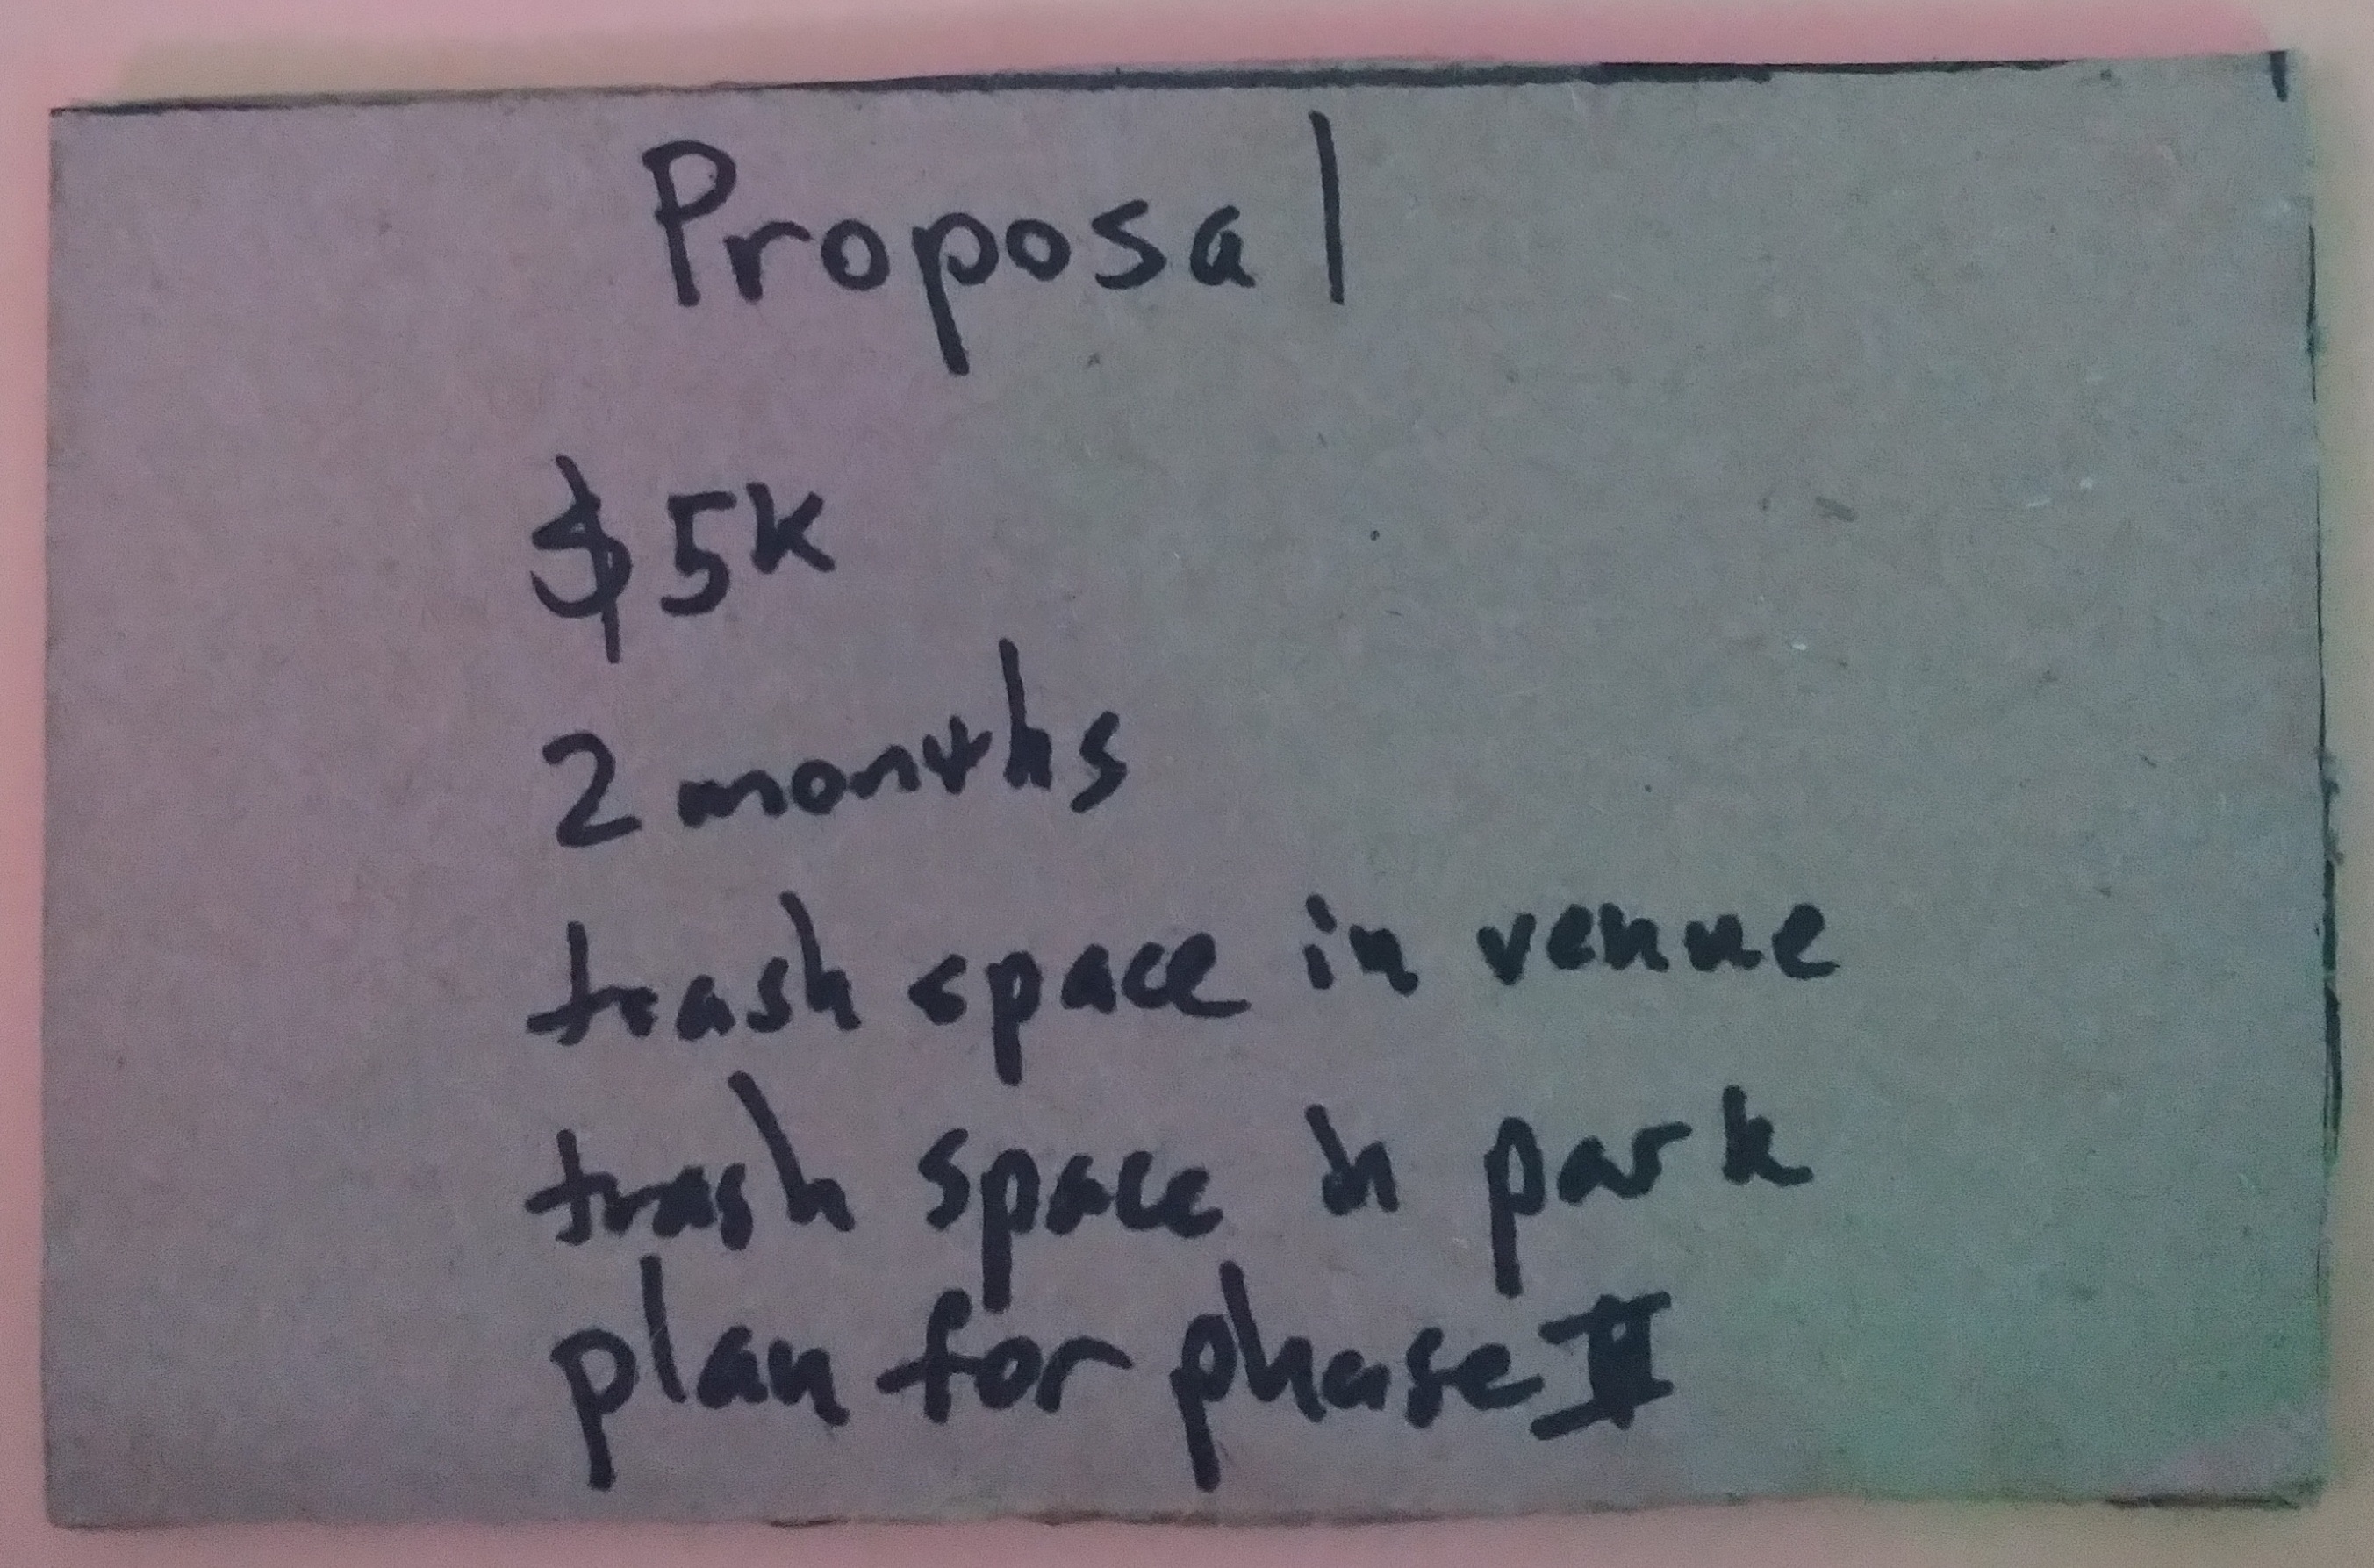 Proposal
$5K
2 months
trash space in venue
trash space in park
plan for phase II